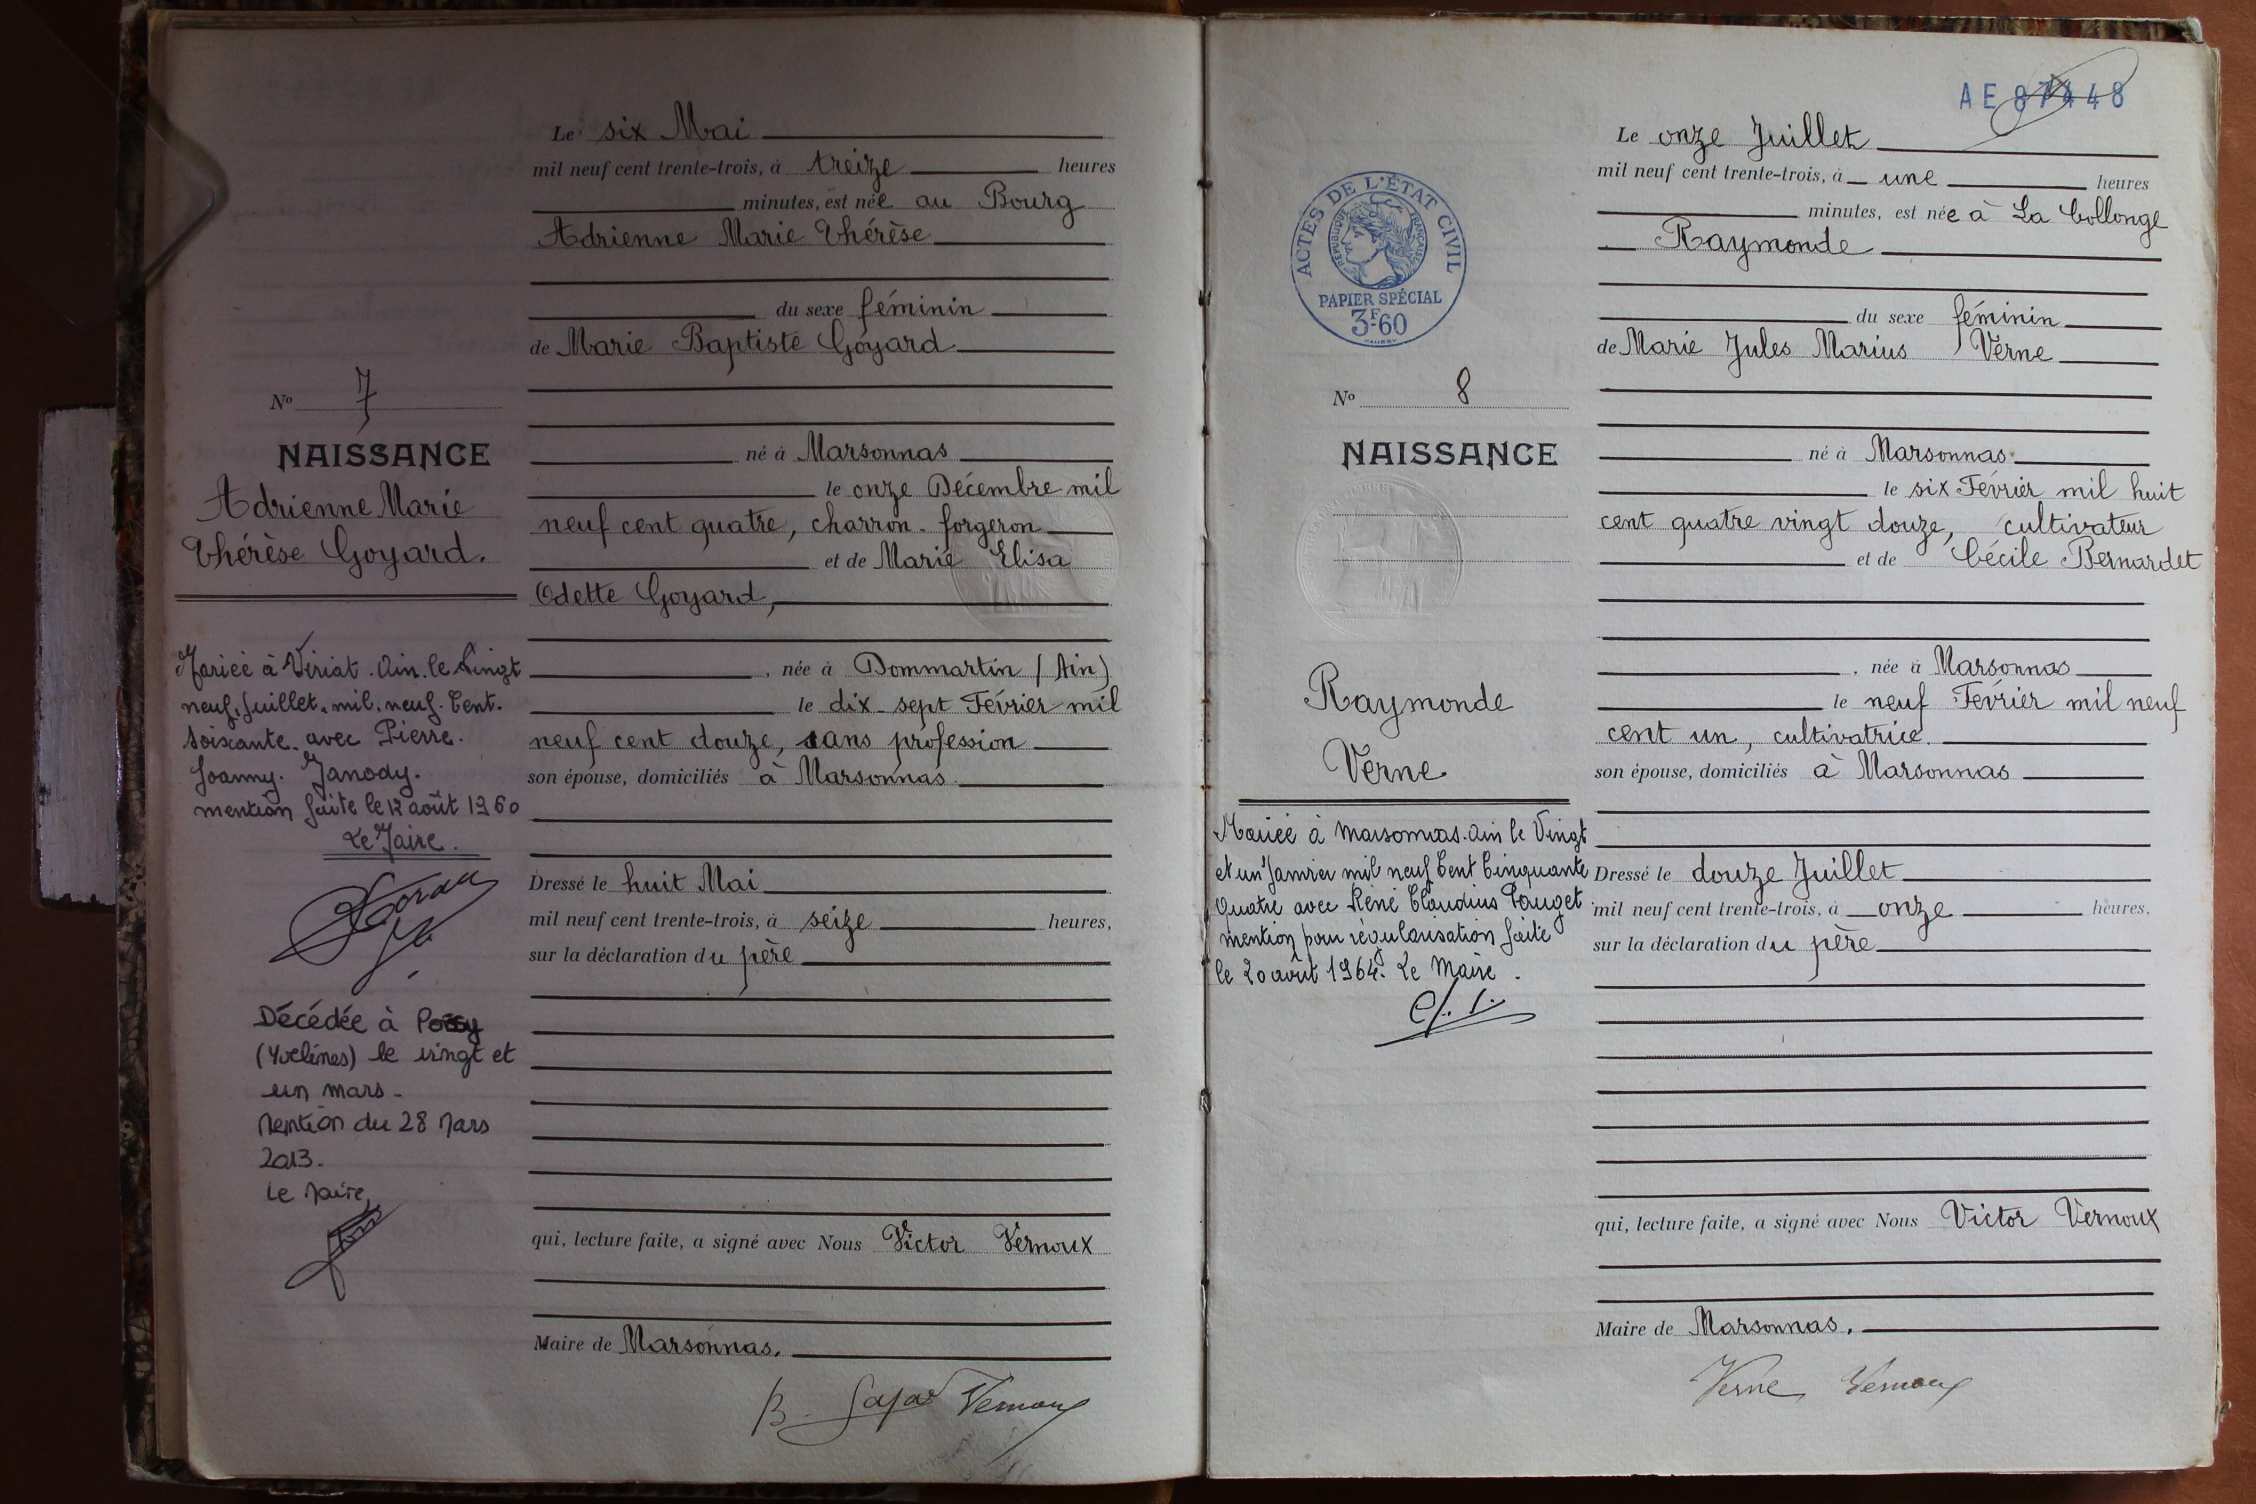 Le six Mai
mil neuf cent trente-trois, à treize heures
minutes, est née au Bourg
Adrienne Marie Thérèse
du sexe féminin
de Marie Baptiste Goyard
né à Marsonnas
le onze Décembre mil
neuf cent quatre, charron-forgeron
et de Marie Elisa
Odette Goyard,
, née à Dommartin (Ain)
le dix-sept Février mil
neuf cent douze, sans profession
son épouse, domiciliés à Marsonnas
Dressé le huit Mai
mil neuf cent trente-trois, à seize heures,
sur la déclaration du père
qui, lecture faite, a signé avec Nous Victor Vernoux
Maire de Marsonnas.
B. Vernoux
No 7
NAISSANCE
Adrienne Marie
Thérèse Goyard.
Mariée à Viriat. Ain. le Vingt
neuf. Juillet. mil. neuf. Cent.
soixante. avec Pierre.
Joanny. Janody.
mention faite le 12 août 1960
Le Maire.
Décédée à Poissy
(Yvelines) le vingt et
un mars -
Mention du 28 Mars
2013.
Le Maire,
AE 87448
ACTES DE L'ÉTAT CIVIL
RÉPUBLIQUE FRANÇAISE
PAPIER SPÉCIAL
3F60
No 8
NAISSANCE
Raymonde
Verne
Mariée à Marsonnas. Ain le Vingt
et un Janvier mil neuf Cent Cinquante
Quatre avec René Claudius Pouget
mention pour régularisation faite
le 20 août 1964. Le Maire.
Le onze Juillet
mil neuf cent trente-trois, à une heures
minutes, est née à La Collonge
Raymonde
du sexe féminin
de Marie Jules Marius Verne
né à Marsonnas
le six Février mil huit
cent quatre vingt douze, cultivateur
et de Cécile Bernardet
, née à Marsonnas
le neuf Février mil neuf
cent un, cultivatrice
son épouse, domiciliés à Marsonnas
Dressé le douze Juillet
mil neuf cent trente-trois, à onze heures.
sur la déclaration du père
qui, lecture faite, a signé avec Nous Victor Vernoux
Maire de Marsonnas.
Verne Vernoux